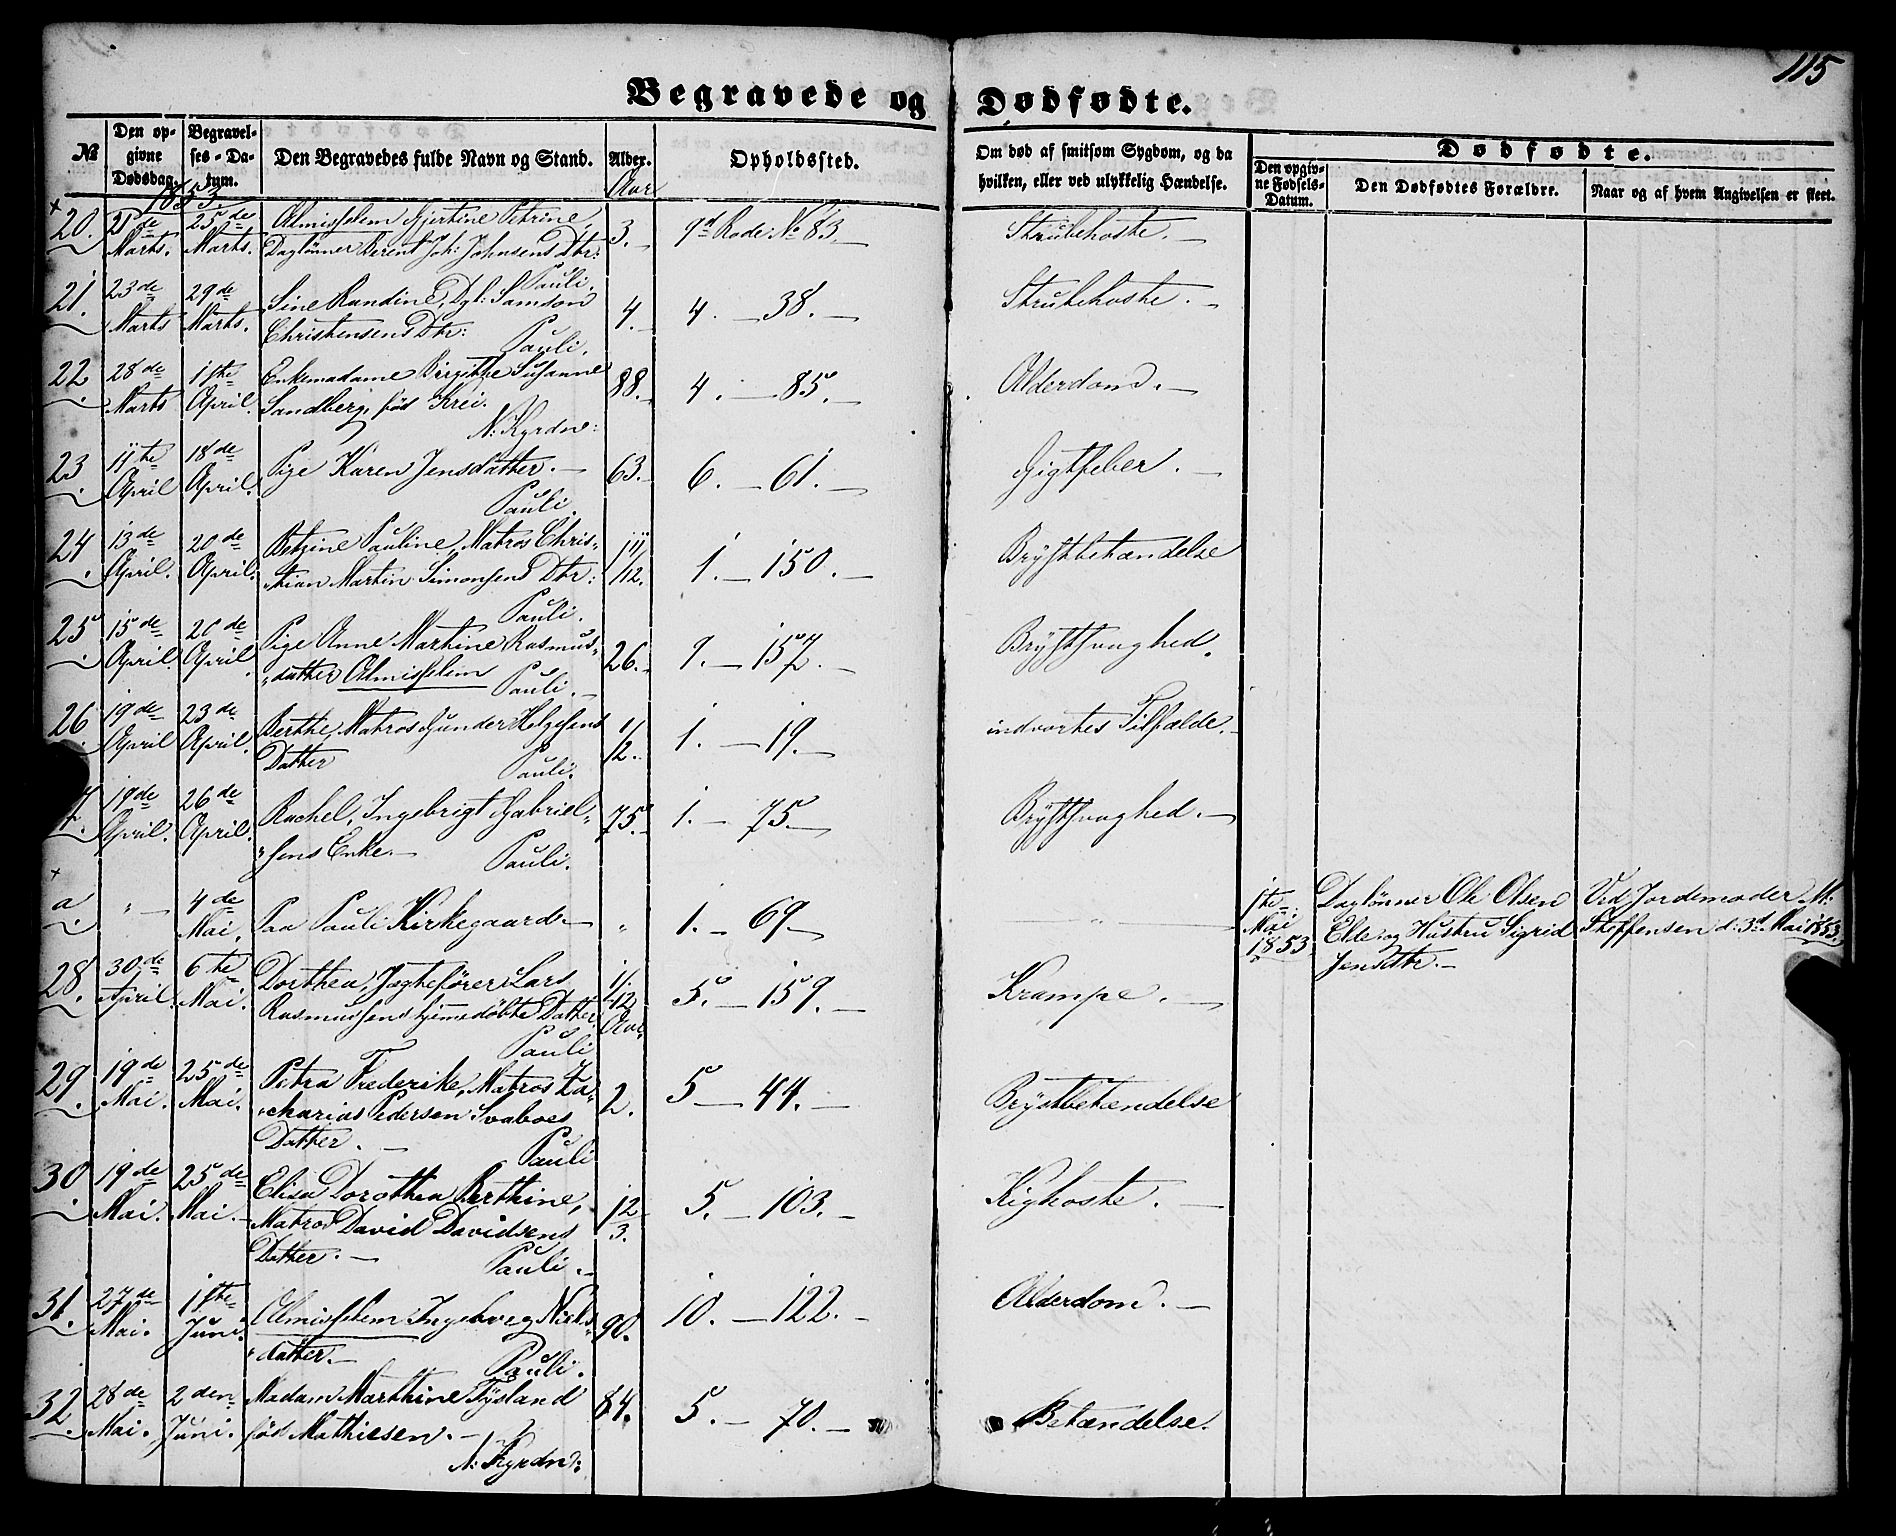 115
Begravede og Dødfødte.
№
Den opgivne Dødsdag.
Begravelses-Datum.
Den Begravedes fulde Navn og Stand.
Alder.
Opholdssted.
Om død af smitsom Sygdom, og da hvilken, eller ved ulykkelig Hændelse.
Dødfødte.
Den opgivne Fødsels-Datum.
Den Dødfødtes Forældre.
Naar og af hvem Angivelsen er skeet.
1853
Aar
20. 21de Marts. 25de Marts. Almisselem Gjertine Petrine, 3. 9d Rode No 83. Strubehoste.
Daglønner Berent Joh: Johnsens Dtr:
Pauli.
21. 23de Marts 29de Marts. Sine Randine, Dgl: Samson 4. 4. — 38. Strubehoste.
Christensens Dtr:
Pauli.
22 28de Marts 1ste April. Enkemadame Birgithe Susanne 88. 4. — 85. Alderdom.
Sandberg, fød Krei.
N: Kyrdn:
23 11te April 18de April. Pige Karen Jensdatter. 63. 6. — 61. Gigtfeber.
Pauli.
24 13de April. 20de April. Betzine Pauline, Matros Chris- 11/12. 1. — 150. Brystbetændelse
stian Martin Simonsens Dtr:
Pauli.
25 15de April. 20de April. Pige Anne Martine Rasmus- 26. 9. — 157. Brystsvaghed.
datter Almisselem
Pauli.
26 19de April 23de April. Berthe, Matros Gunder Helgesens 1/12. 1. — 19. indvortes Tilfælde.
Datter
Pauli.
7. 19de April. 26de April. Rachel, Ingebrigt Gabriel- 75. 1. — 75. Brystsvaghed.
sens Enke.
Pauli.
a 4de Mai. Paa Pauli Kirkegaard 1. — 69. 1ste Mai 1853. Daglønner Ole Olsen Ved Jordemoder M:
Elde og Hustru Sigrid Steffensen d: 3d Mai 1853.
Jensdtr.
28. 30de April. 6te Mai. Dorthea, Jagtefører Lars 1/12 Aar. 5. — 159. Krampe.
Rasmussens hjemmedøbte Datter
Pauli
29. 19de Mai. 25de Mai. Petra Frederike, Matros Za- 2. 5 — 44. Brystbetændelse
charias Pedersen Svaboes
Datter.
Pauli
30 19de Mai. 25de Mai. Elisa Dorothea Berthine, 12/3. 5. — 103. Kighoste.
Matros David Davidsens
Datter.
Pauli.
31. 27de Mai. 1ste Juni. Almisselem Ingeborg Niels- 90. 10. — 122. Alderdom.
datter.
Pauli.
32. 28de Mai. 2den Juni. Madam Marthine Tysland 84. 5. — 70. Betændelse.
fød Mathiesen.
N: Kyrdn: